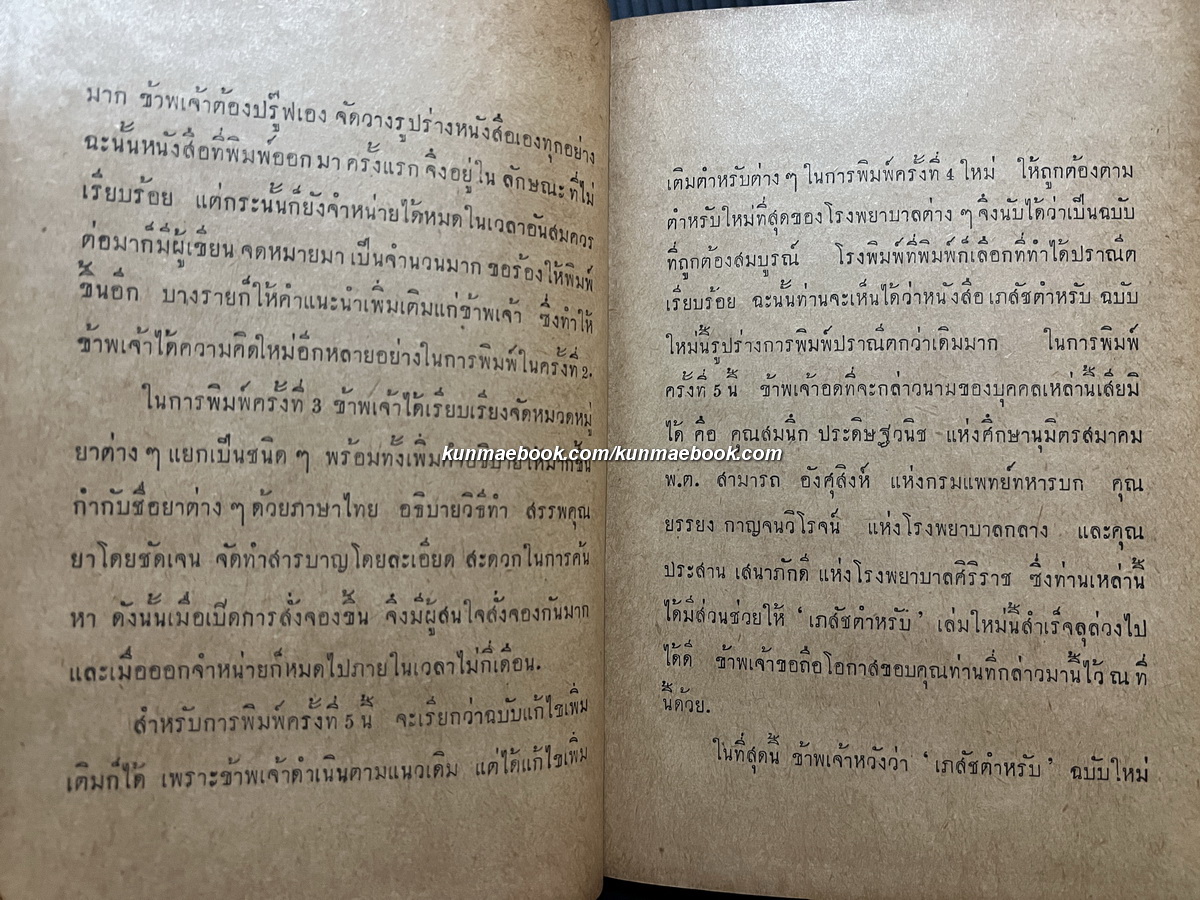 มาก ข้าพเจ้าต้องปรู๊ฟเอง จัดวางรูปร่างหนังสือเองทุกอย่าง
ฉะนั้นหนังสือที่พิมพ์ออกมา ครั้งแรก จึงอยู่ใน ลักษณะ ที่ไม่
เรียบร้อย แต่กระนั้นก็ยังจำหน่ายได้หมดในเวลาอันสมควร
ต่อมาก็มีผู้เขียน จดหมายมา เป็นจำนวนมาก ขอร้องให้พิมพ์
ขึ้นอีก บางรายก็ให้คำแนะนำเพิ่มเติมแก่ข้าพเจ้า ซึ่งทำให้
ข้าพเจ้าได้ความคิดใหม่อีกหลายอย่างในการพิมพ์ในครั้งที่ 2.
ในการพิมพ์ครั้งที่ 3 ข้าพเจ้าได้เรียบเรียงจัดหมวดหมู่
ยาต่าง ๆ แยกเป็นชนิด ๆ พร้อมทั้งเพิ่มคำอธิบายให้มากขึ้น
กำกับชื่อยาต่าง ๆ ด้วยภาษาไทย อธิบายวิธีทำ สรรพคุณ
ยาโดยชัดเจน จัดทำสารบาญโดยละเอียด สะดวกในการค้น
หา ดังนั้นเมื่อเปิดการสั่งจองขึ้น จึงมีผู้สนใจสั่งจองกันมาก
และเมื่อออกจำหน่ายก็หมดไปภายในเวลาไม่กี่เดือน.
สำหรับการพิมพ์ครั้งที่ 5 นี้ จะเรียกว่าฉบับแก้ไขเพิ่ม
เติมก็ได้ เพราะข้าพเจ้าดำเนินตามแนวเดิม แต่ได้แก้ไขเพิ่ม
เติมตำหรับต่าง ๆ ในการพิมพ์ครั้งที่ 4 ใหม่ ให้ถูกต้องตาม
ตำหรับใหม่ที่สุดของโรงพยาบาลต่าง ๆ จึงนับได้ว่าเป็นฉบับ
ที่ถูกต้องสมบูรณ์ โรงพิมพ์ที่พิมพ์ก็เลือกที่ทำได้ปราณีต
เรียบร้อย ฉะนั้นท่านจะเห็นได้ว่าหนังสือ เภสัชตำหรับ ฉบับ
ใหม่นี้รูปร่างการพิมพ์ปราณีตกว่าเดิมมาก ในการพิมพ์
ครั้งที่ 5 นี้ ข้าพเจ้าอดที่จะกล่าวนามของบุคคลเหล่านี้เสียมิ
ได้ คือ คุณสมนึก ประดิษฐ์วนิช แห่งศึกษานุมิตรสมาคม
kunmaebook.com/kunmaebook.com
พ.ต. สามารถ อังศุสิงห์ แห่งกรมแพทย์ทหารบก คุณ
ยรรยง กาญจนวิโรจน์ แห่งโรงพยาบาลกลาง และคุณ
ประสาน เสนาภักดี แห่งโรงพยาบาลศิริราช ซึ่งท่านเหล่านี้
ได้มีส่วนช่วยให้ ‘เภสัชตำหรับ’ เล่มใหม่นี้สำเร็จลุล่วงไป
ได้ดี ข้าพเจ้าขอถือโอกาสขอบคุณท่านที่กล่าวมานี้ไว้ ณ ที่
นี้ด้วย.
ในที่สุดนี้ ข้าพเจ้าหวังว่า ‘เภสัชตำหรับ’ ฉบับใหม่